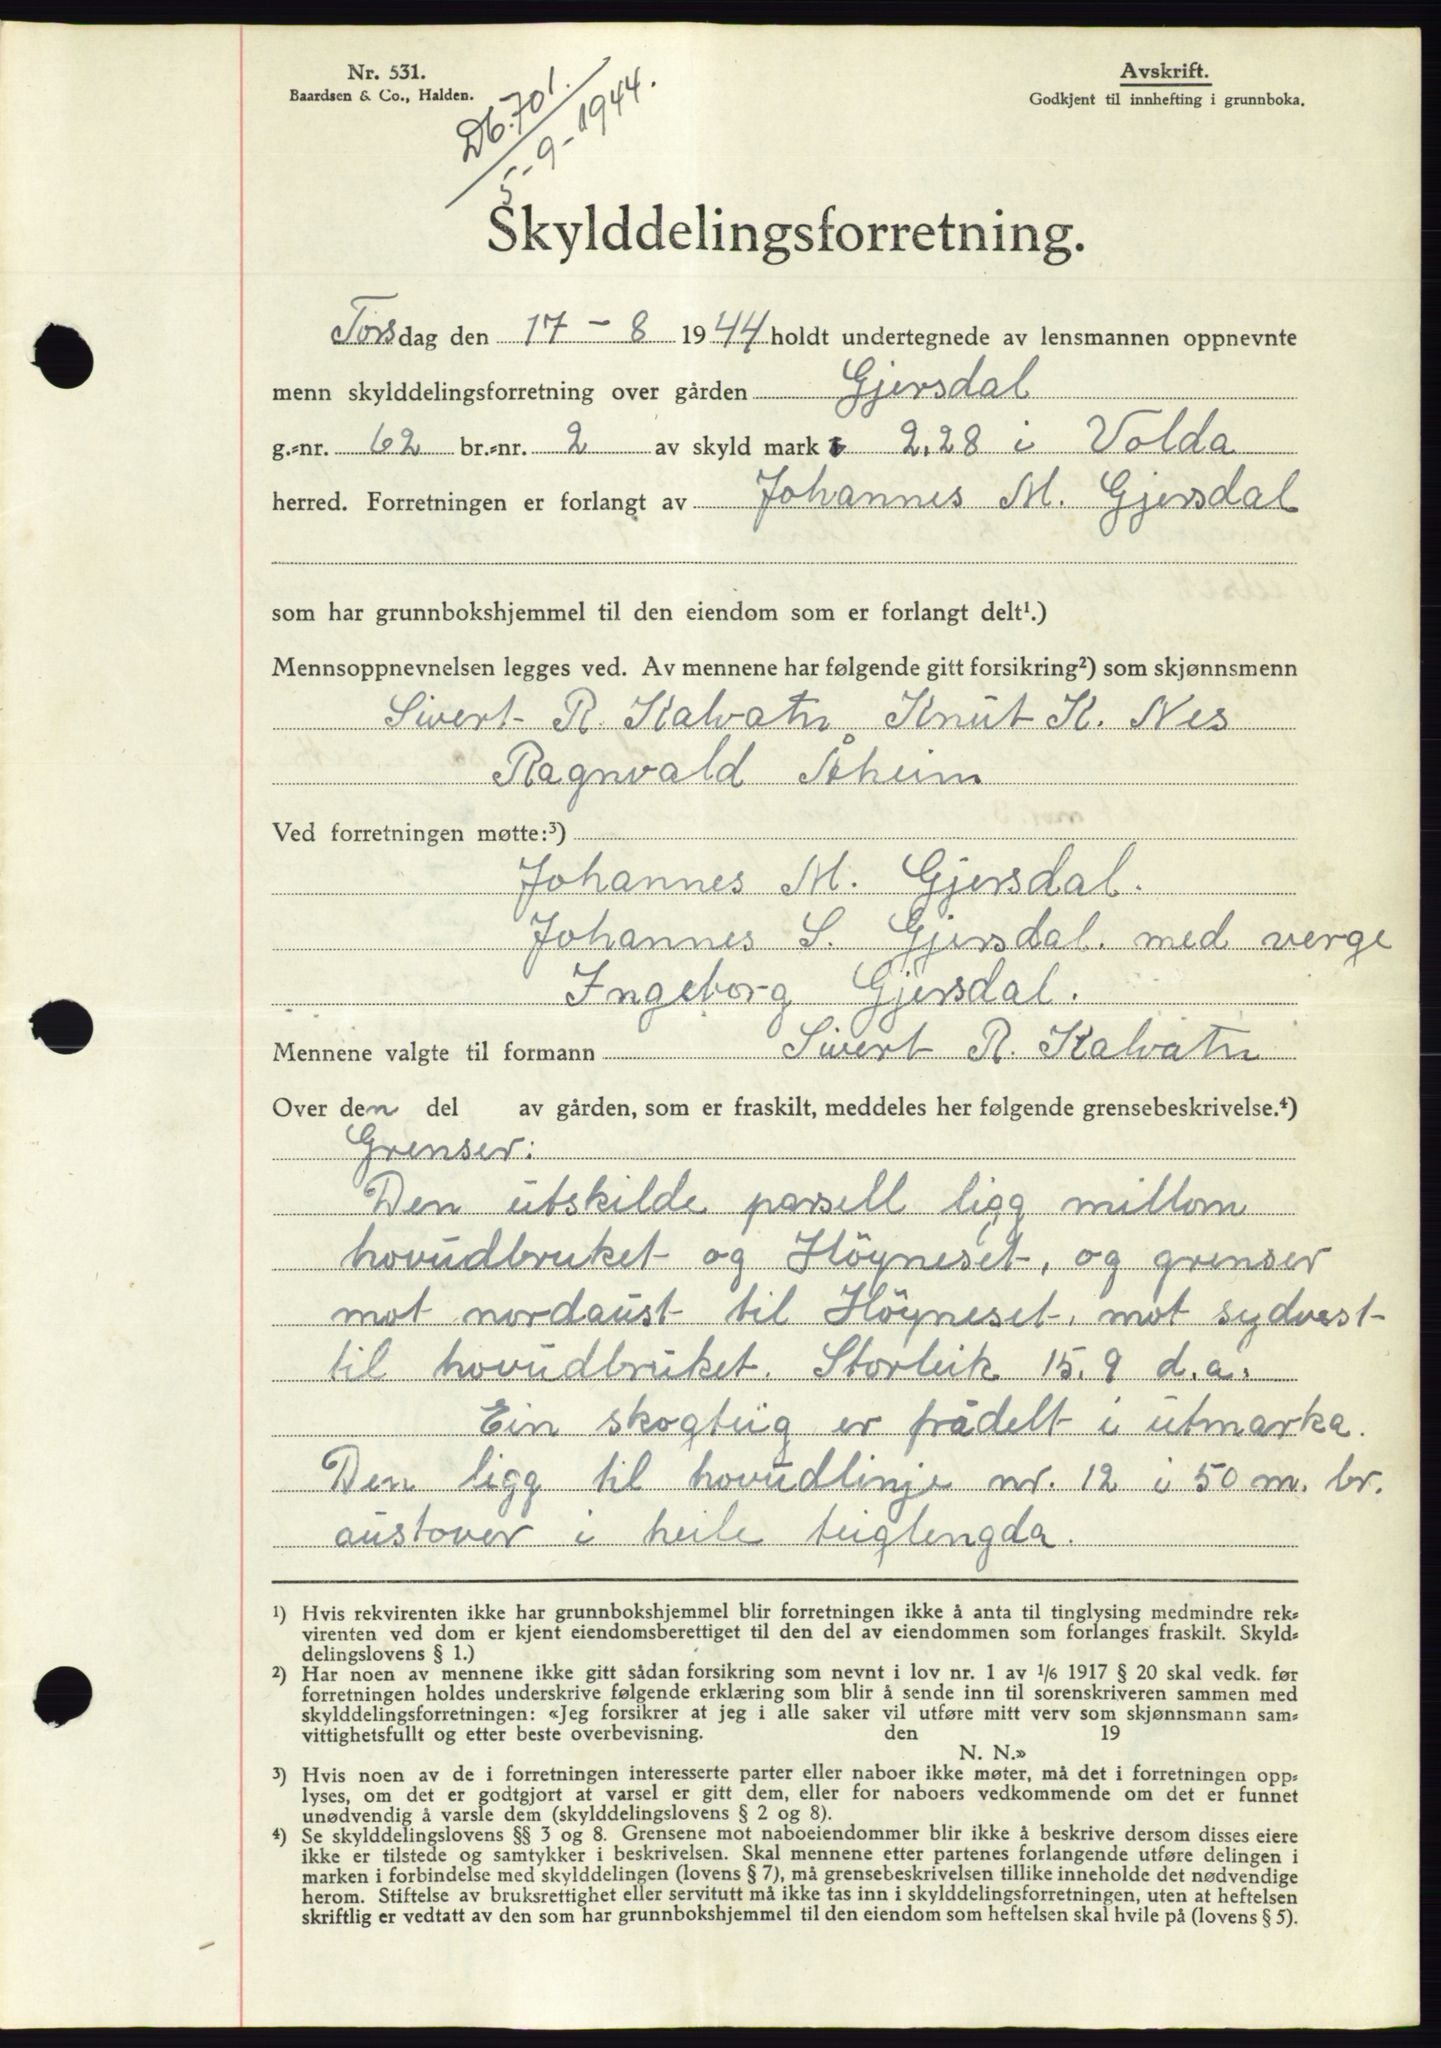 Nr. 531.
Baardsen & Co., Halden.
Db. 701.
5-9-1944.
Avskrift.
Godkjent til innhefting i grunnboka.
Skylddelingsforretning.
Torsdag den 17 - 8 1944 holdt undertegnede av lensmannen oppnevnte
menn skylddelingsforretning over gården Gjersdal
g.-nr. 62 br.-nr. 2 av skyld mark 2,28 i Volda
herred. Forretningen er forlangt av Johannes M. Gjersdal
som har grunnbokshjemmel til den eiendom som er forlangt delt¹.)
Mennsoppnevnelsen legges ved. Av mennene har følgende gitt forsikring²) som skjønnsmenn
Sivert R. Kalvatn Knut K. Nes
Ragnvald Åheim
Ved forretningen møtte:³)
Johannes M. Gjersdal.
Johannes S. Gjersdal. med verge
Ingeborg Gjersdal.
Mennene valgte til formann Sivert R. Kalvatn
Over den del av gården, som er fraskilt, meddeles her følgende grensebeskrivelse.⁴)
Grenser:
Den utskilde parsell ligg millom
hovudbruket og Höyneset, og grenser
mot nordaust til Höyneset, mot sydvest
til hovudbruket. Storleik 15,9 d.a.
Ein skogteig er frådelt i utmarka.
Den ligg til hovudlinje nr. 12 i 50 m. br.
austover i heile teiglengda.
¹) Hvis rekvirenten ikke har grunnbokshjemmel blir forretningen ikke å anta til tinglysing medmindre rek-
virenten ved dom er kjent eiendomsberettiget til den del av eiendommen som forlanges fraskilt. Skyld-
delingslovens § 1.)
²) Har noen av mennene ikke gitt sådan forsikring som nevnt i lov nr. 1 av 1/6 1917 § 20 skal vedk. før
forretningen holdes underskrive følgende erklæring som blir å sende inn til sorenskriveren sammen med
skylddelingsforretningen: «Jeg forsikrer at jeg i alle saker vil utføre mitt verv som skjønnsmann sam-
vittighetsfullt og etter beste overbevisning. den 19
N. N.»
³) Hvis noen av de i forretningen interesserte parter eller naboer ikke møter, må det i forretningen opp-
lyses, om det er godtgjort at varsel er gitt dem, eller for naboers vedkommende om det er funnet
unødvendig å varsle dem (skylddelingslovens § 2 og 8).
⁴) Se skylddelingslovens §§ 3 og 8. Grensene mot naboeiendommer blir ikke å beskrive dersom disses eiere
ikke er tilstede og samtykker i beskrivelsen. Skal mennene etter partenes forlangende utføre delingen i
marken i forbindelse med skylddelingen (lovens § 7), må grensebeskrivelsen tillike inneholde det nødvendige
herom. Stiftelse av bruksrettighet eller servitutt må ikke tas inn i skylddelingsforretningen, uten at heftelsen
skriftlig er vedtatt av den som har grunnbokshjemmel til den eiendom som heftelsen skal hvile på (lovens § 5).